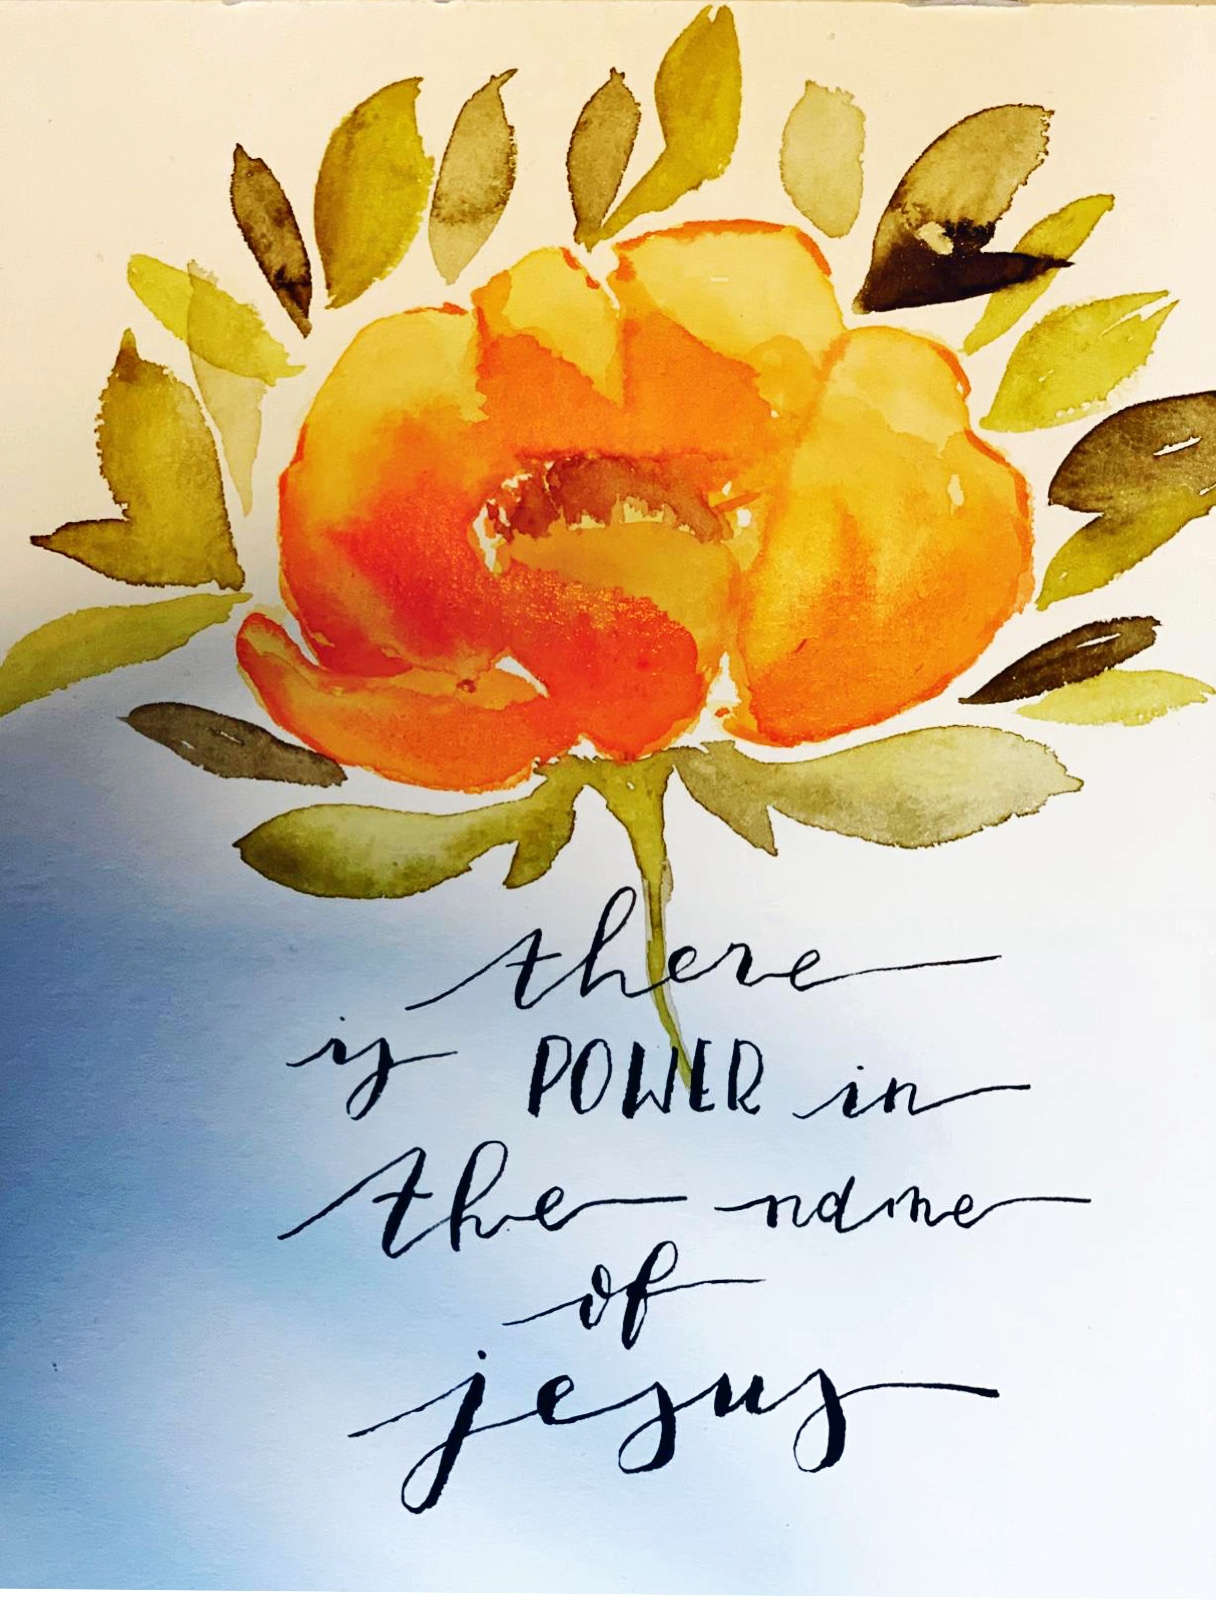 there
is POWER in
the name
of
jesus